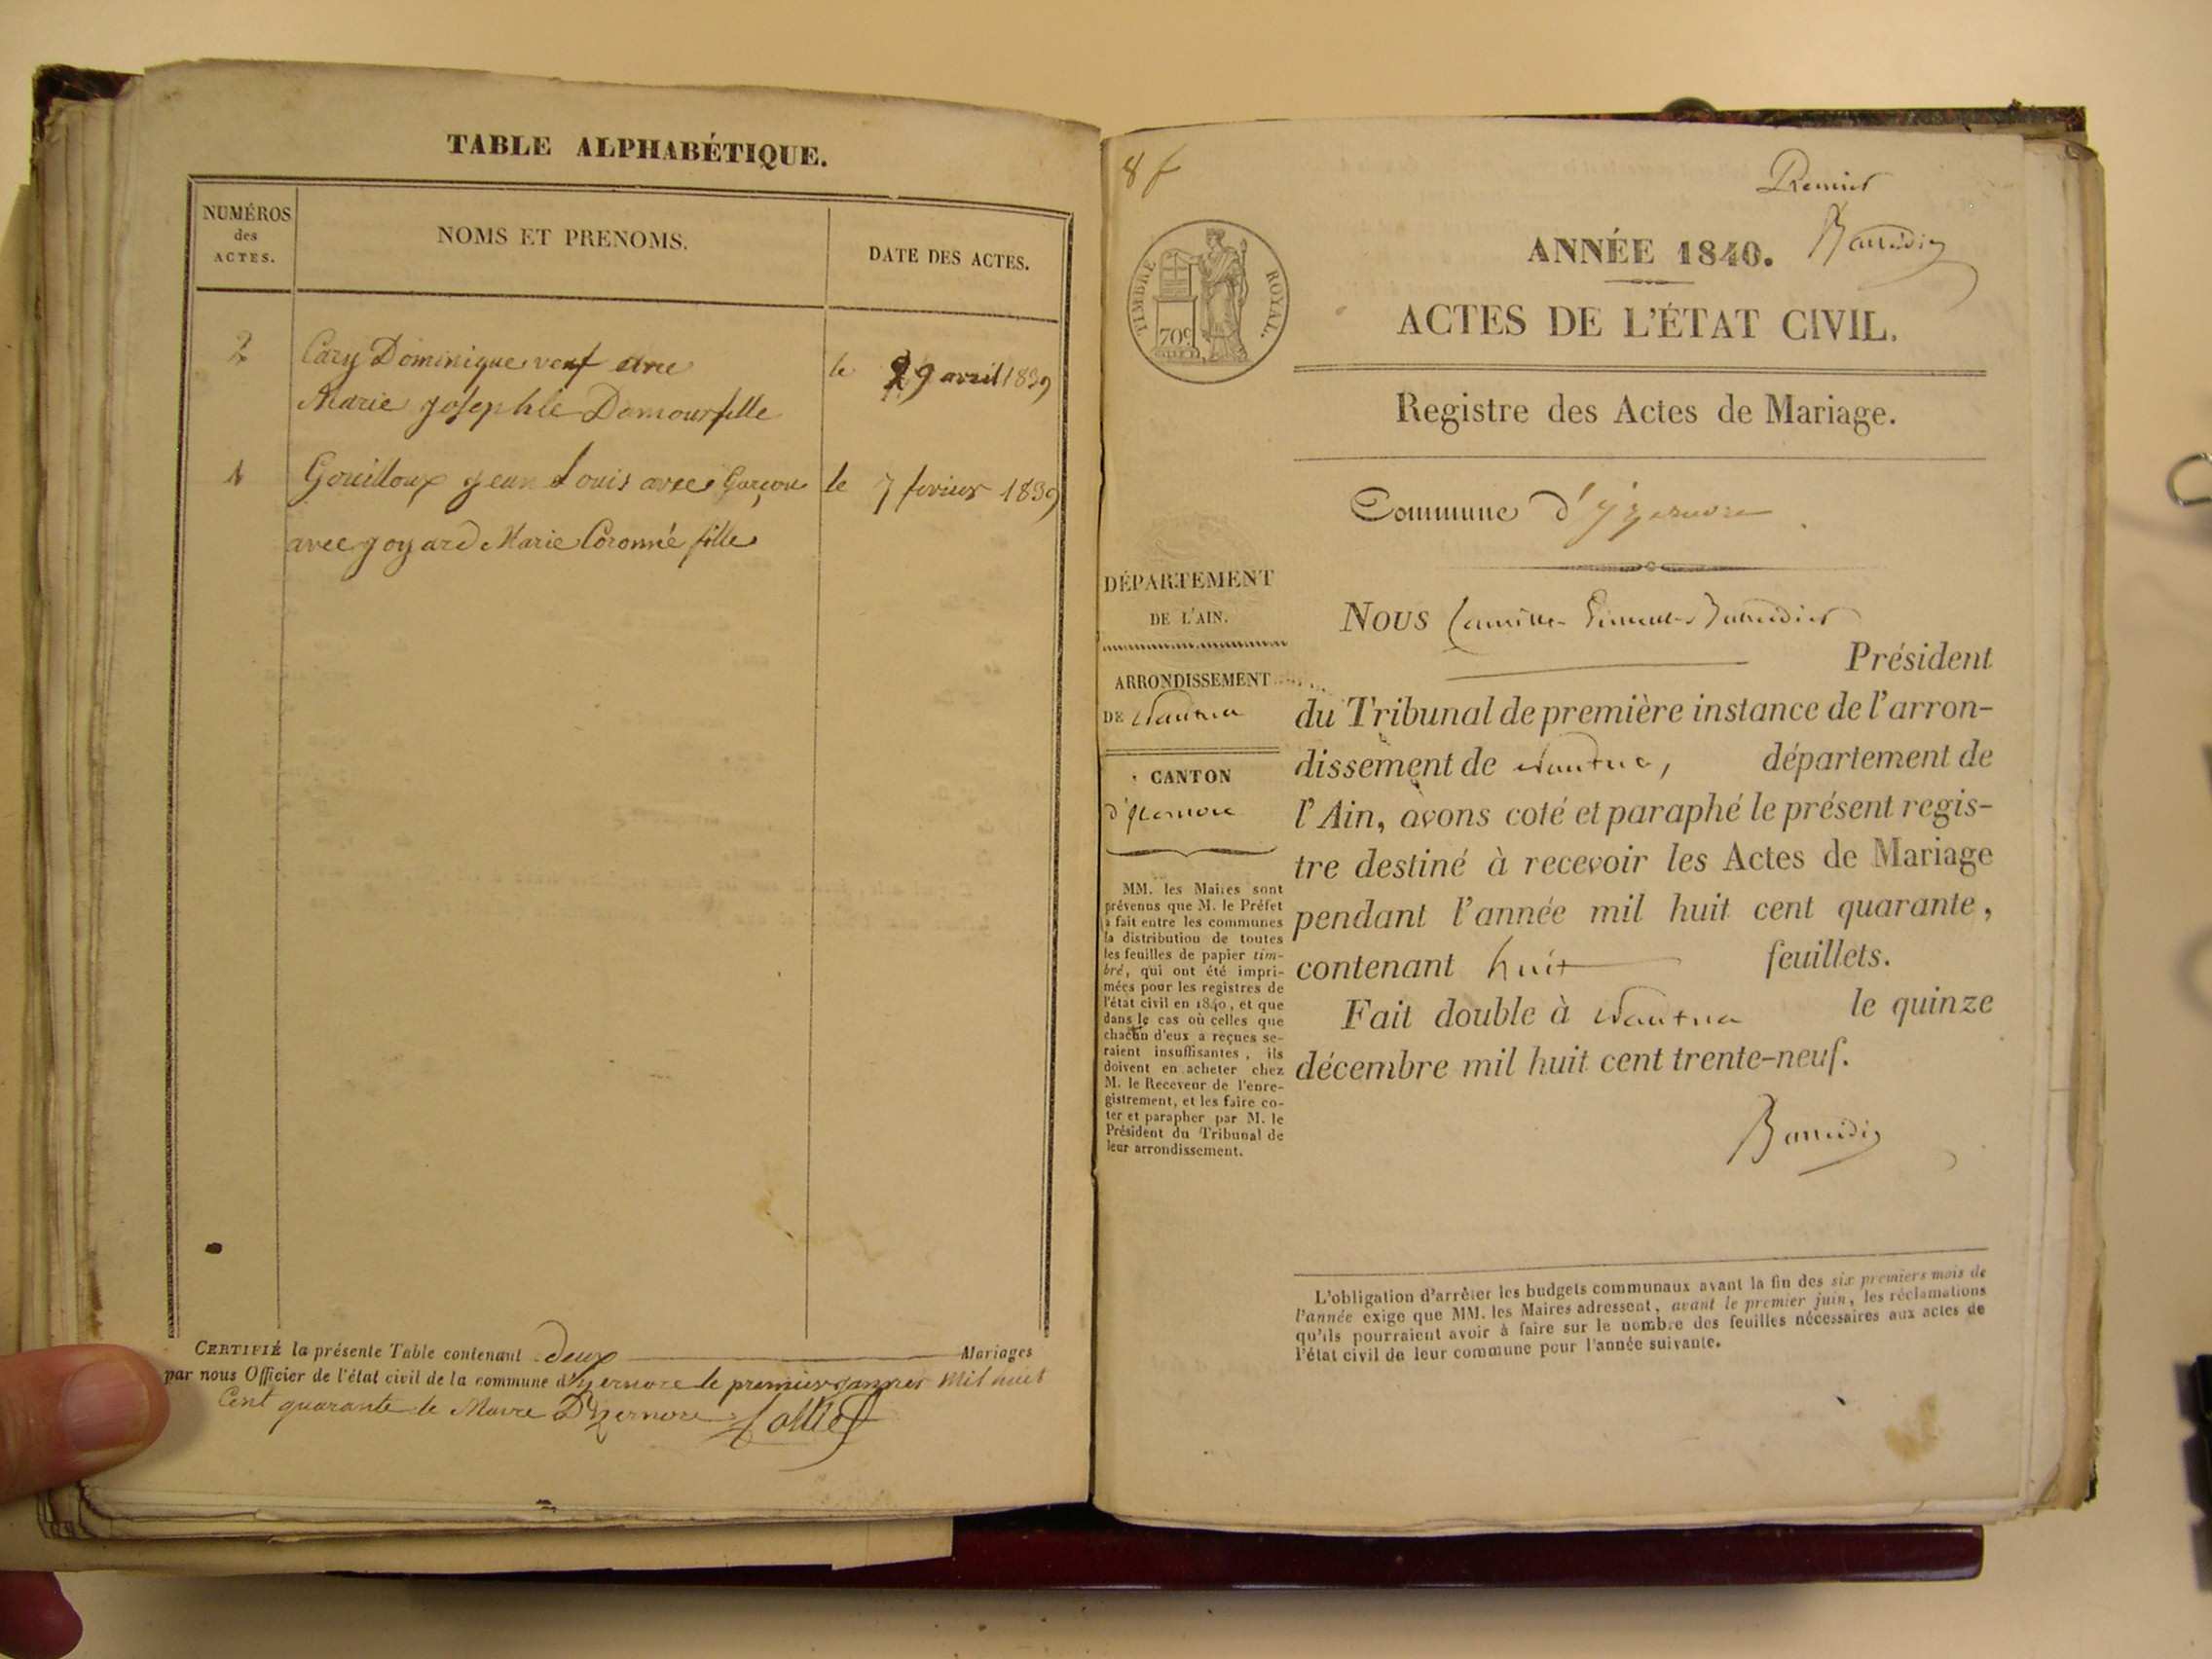 TABLE ALPHABÉTIQUE.
NUMÉROS
des
ACTES.
NOMS ET PRENOMS.
DATE DES ACTES.
2
Cary Dominique veuf avec
le 29 avril 1839
Marie Josephte Damour fille
1
Gouilloux Jean Louis avec Garçon
le 7 fevrier 1839
avec goyard Marie Coronné fille
CERTIFIÉ la présente Table contenant deux Mariages
par nous Officier de l'état civil de la commune d'Izernore le premier janvier Mil huit
Cent quarante le Maire D'Izernore
8 f
Premier
TIMBRE ROYAL.
70c
ANNÉE 1840.
ACTES DE L'ÉTAT CIVIL.
Registre des Actes de Mariage.
Commune d'Izernore
DÉPARTEMENT
DE L'AIN.
ARRONDISSEMENT
DE Nantua
CANTON
d'Izernore
MM. les Maires sont
prévenus que M. le Préfet
a fait entre les communes
la distribution de toutes
les feuilles de papier tim-
bré, qui ont été impri-
mées pour les registres de
l'état civil en 1840, et que
dans le cas où celles que
chacun d'eux a reçues se-
raient insuffisantes, ils
doivent en acheter chez
M. le Receveur de l'enre-
gistrement, et les faire co-
ter et parapher par M. le
Président du Tribunal de
leur arrondissement.
Nous Camille
Président
du Tribunal de première instance de l'arron-
dissement de Nantua, département de
l'Ain, avons coté et paraphé le présent regis-
tre destiné à recevoir les Actes de Mariage
pendant l'année mil huit cent quarante,
contenant huit feuillets.
Fait double à Nantua le quinze
décembre mil huit cent trente-neuf.
L'obligation d'arrêter les budgets communaux avant la fin des six premiers mois de
l'année exige que MM. les Maires adressent, avant le premier juin, les réclamations
qu'ils pourraient avoir à faire sur le nombre des feuilles nécessaires aux actes de
l'état civil de leur commune pour l'année suivante.